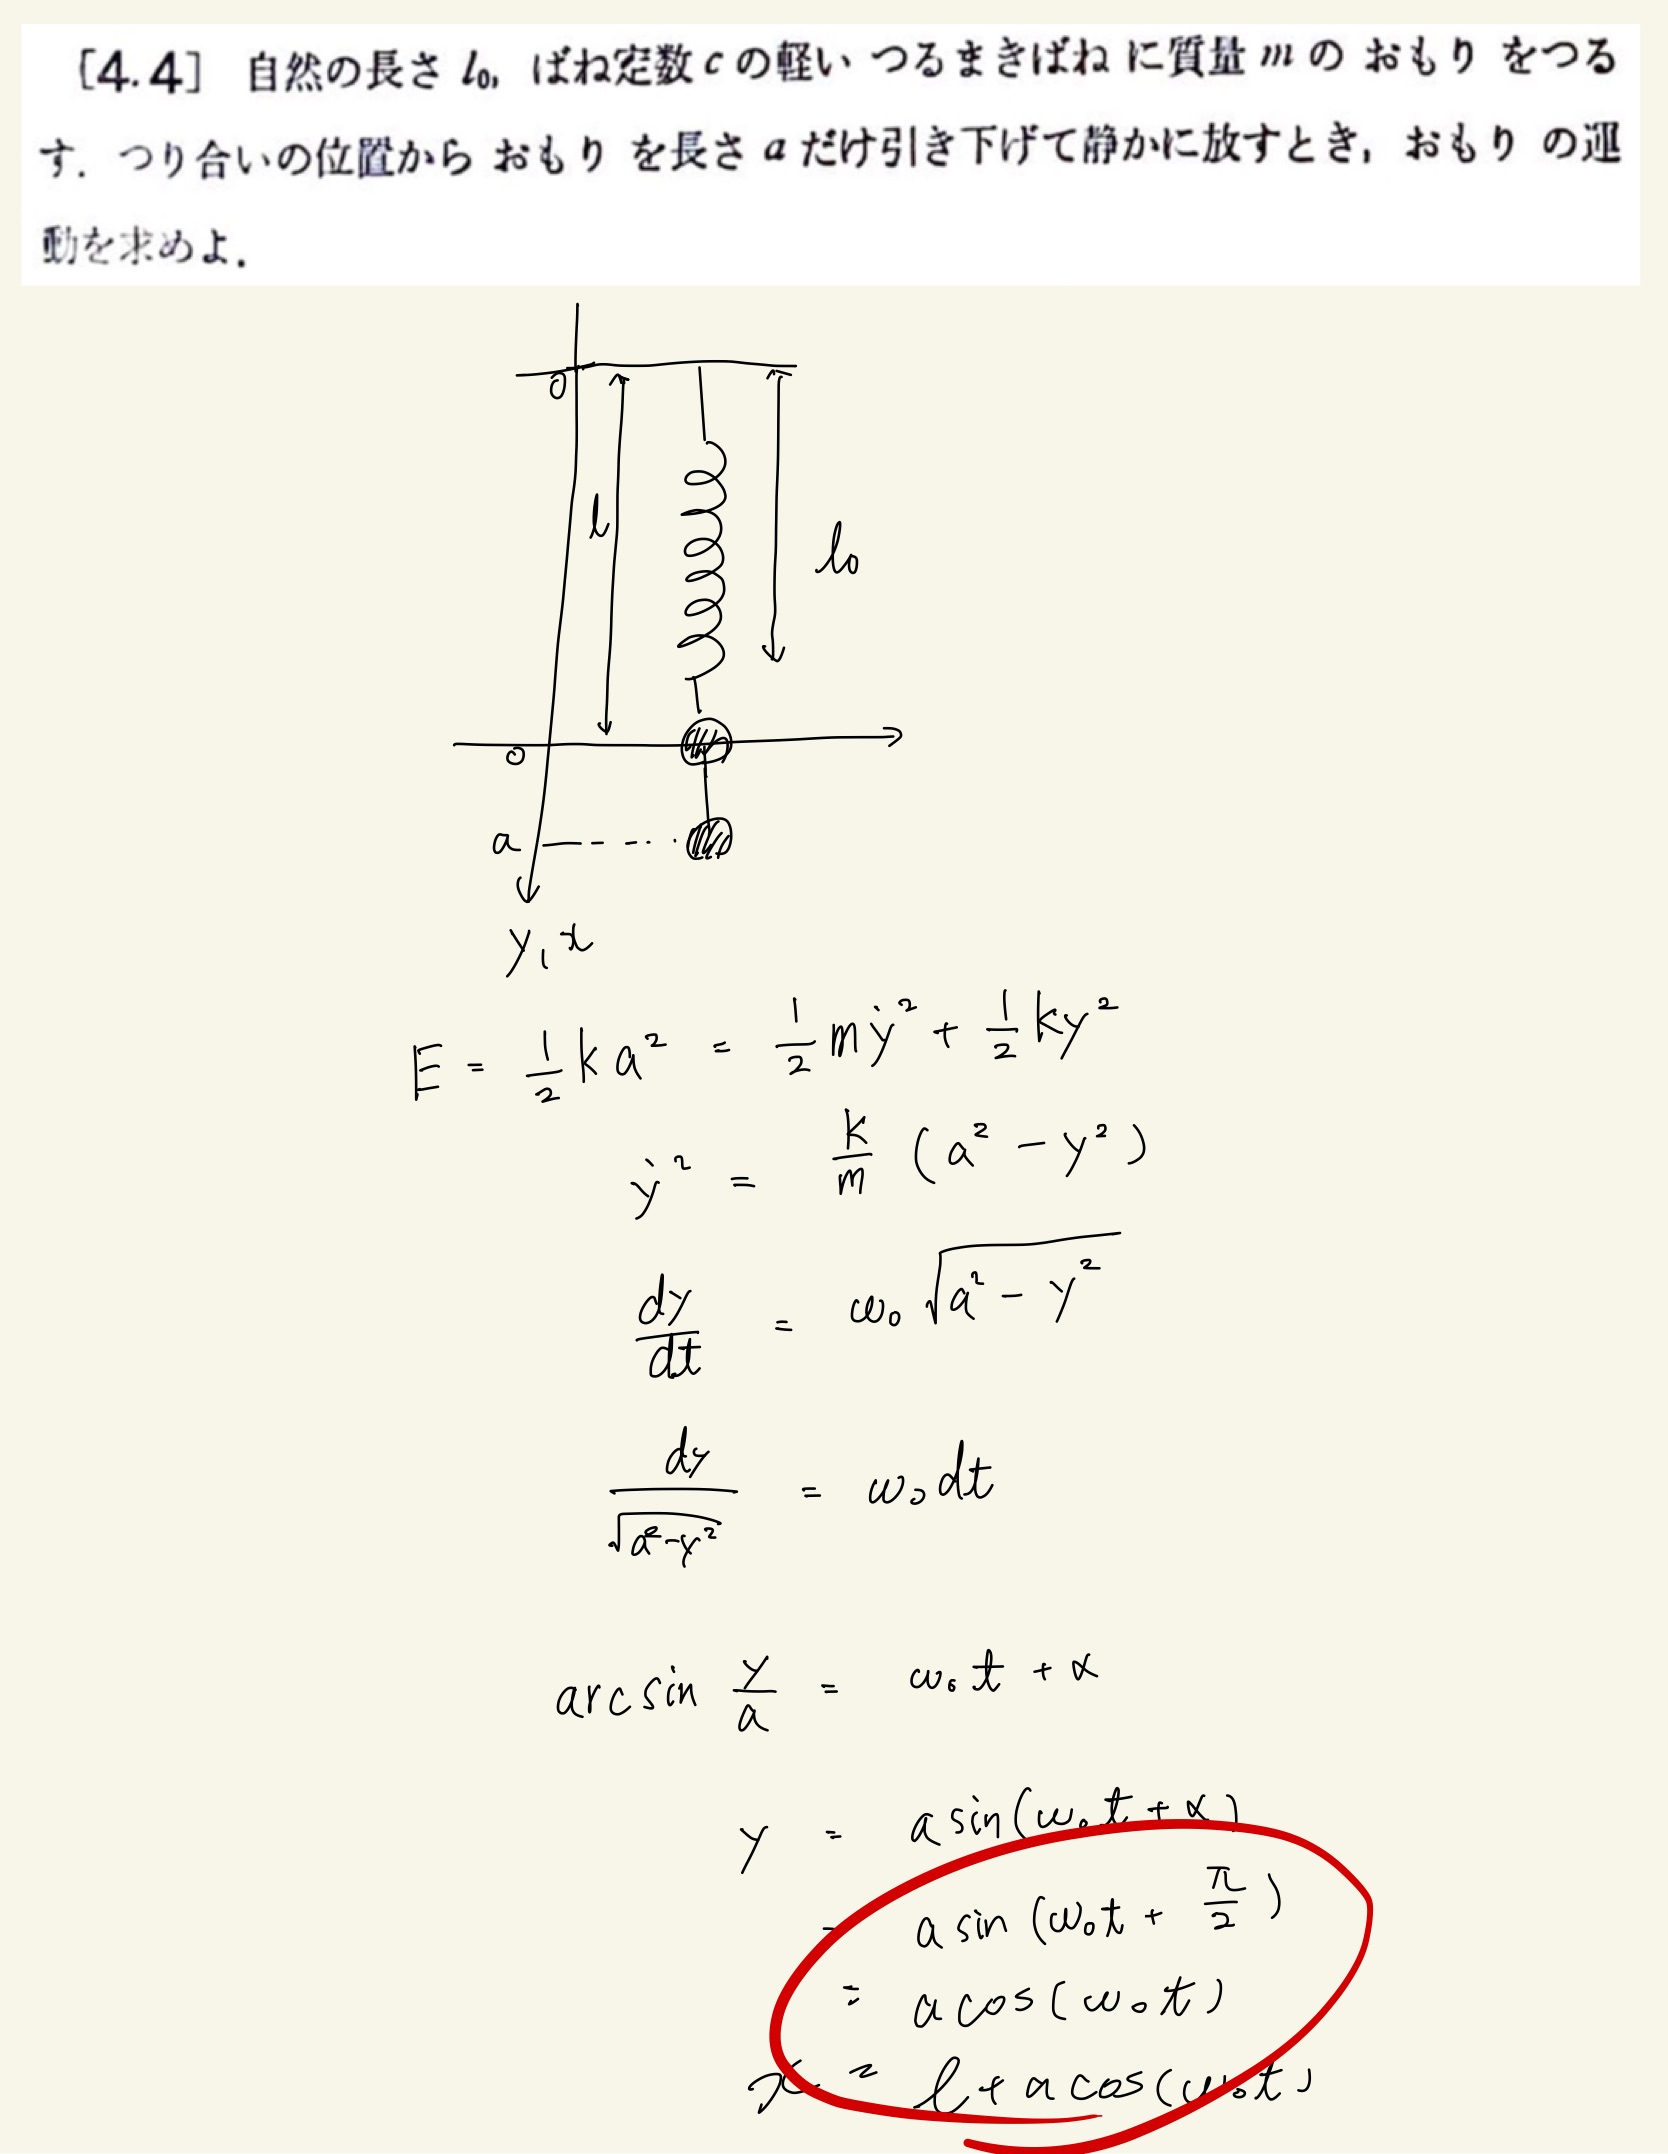 [4.4] 自然の長さ l₀, ばね定数 c の軽い つるまきばね に質量 m の おもり をつる
す. つり合いの位置から おもり を長さ a だけ引き下げて静かに放すとき, おもり の運
動を求めよ.
0
l
l₀
0
a
y, x
E = 1/2 k a² = 1/2 m ẏ² + 1/2 k y²
ẏ² = k/m (a² - y²)
dy/dt = ω₀ √(a² - y²)
dy/√(a² - y²) = ω₀ dt
arcsin y/a = ω₀ t + α
y = a sin(ω₀ t + α)
= a sin (ω₀ t + π/2)
= a cos (ω₀ t)
x = l + a cos (ω₀ t)